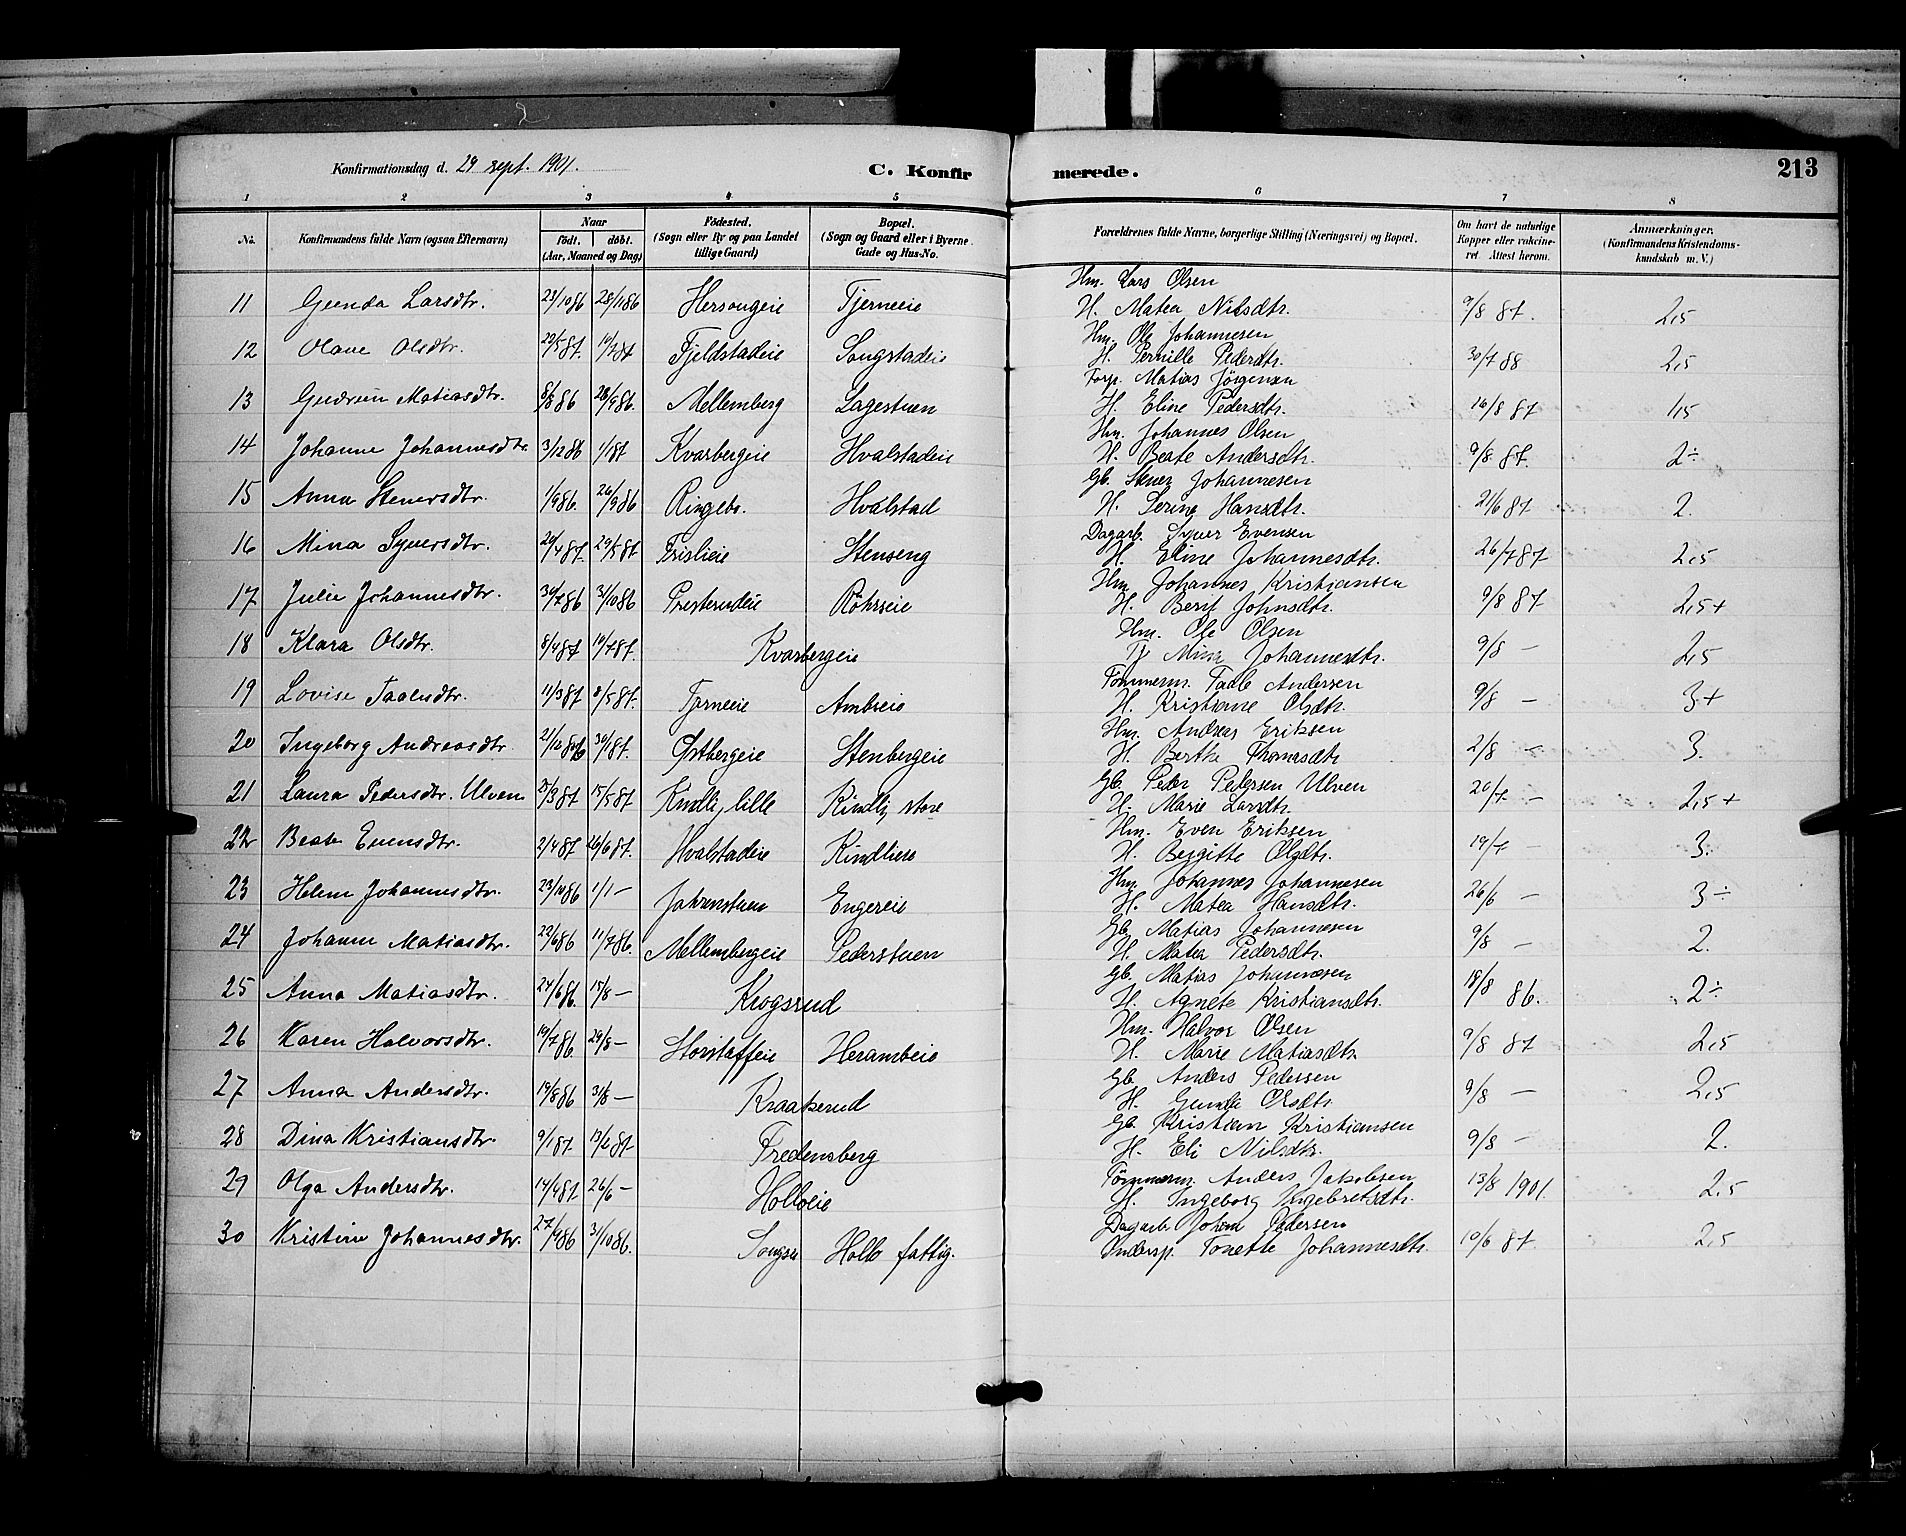 Konfirmationsdag d. 29 sept. 1901.
C. Konfirmerede.
213
1 2 3 4 5 6 7 8
No.
Konfirmandens fulde Navn (ogsaa Efternavn)
Naar
födt. döbt.
(Aar, Maaned og Dag)
Födested.
(Sogn eller By og paa Landet
tillige Gaard)
Bopæl.
(Sogn og Gaard eller i Byerne
Gade og Hus-No.
Forældrenes fulde Navne, borgerlige Stilling (Næringsvei) og Bopæl.
Om havt de naturlige
Kopper eller vakcine-
ret. Attest herom.
Anmærkninger.
(Konfirmandens Kristendoms-
kundskab m. V.)
Hm. Lars Olsen
11 Gunda Larsdtr. 23/10 86 28/11 86 Hersougeie Tjerneeie H. Matea Nilsdtr. 9/8 87. 2,5
Hm. Ole Johannesen
12 Olave Olsdtr. 29/5 87. 10/7 87 Fjeldstadeie Songstadeie H. Pernille Pedersdtr. 30/7 88 2,5
Forp. Matias Jörgensen
13 Gudrun Matiasdtr. 8/8 86 26/9 86. Mellemberg Lagestuen H. Eline Pedersdtr. 16/8 87 1,5
Hm. Johannes Olsen
14 Johanne Johannesdtr. 3/12 86 1/1 87 Kvarbergeie Hvalstadeie H. Beate Andersdtr. 9/8 87. 2÷
Gb. Stener Johannesen
15 Anna Stenersdtr. 1/9 86. 26/9 86 Ringebo. Hvalstad H. Serine Hansdtr. 21/6 87 2.
Dagarb. Syver Evensen
16 Mina Syversdtr. 20/4 87. 29/5 87. Frislieie Stenseng H. Eline Johannesdtr. 26/7 87 2,5
Hm. Johannes Kristiansen
17 Julie Johannesdtr. 30/7 86 3/10 86 Presterudeie Röhrseie H. Berit Johnsdtr. 9/8 87 2,5+
Hm. Ole Olsen
18 Klara Olsdtr. 8/4 87 10/7 87. Kvarbergeie Tj Mina Johannesdtr. 9/8 — 2,5
Tömmerm. Taale Andersen
19 Lovise Taalesdtr. 11/3 87 8/5 87. Tjerneeie Ambreie H. Kristiane Olsdtr. 9/8 — 3+
Hm. Andreas Eriksen
20 Ingeborg Andreasdtr. 21/10 86 30/1 87. Østbergeie Stenbergeie H. Berthe Thomasdtr 2/8 — 3.
Gb. Peder Pedersen Ulven
21 Laura Pedersdtr. Ulven 31/3 87 15/5 87 Kindli, lille Kindli, store H. Marie Larsdtr. 20/7 — 2,5+
Hm. Even Eriksen
22 Beate Evensdtr. 2/4 87 26/6 87. Hvalstadeie Kindlieie H. Bergitte Olsdtr. 19/7 — 3.
Hm. Johannes Johannesen
23 Helene Johannesdtr. 23/10 86 1/1 — Jahrenstuen Engereie H. Matea Hansdtr. 26/6 — 3÷
Gb. Matias Johannesen
24 Johanne Matiasdtr. 22/6 86 11/7 86. Mellembergeie Pederstuen H. Matea Pedersdtr. 9/8 — 2.
Gb. Matias Johannesen
25 Anna Matiasdtr. 24/6 86. 15/8 — Krogsrud H. Agnete Kristiansdtr. 18/8 86. 2÷
Hm. Halvor Olsen
26 Karen Halvorsdtr. 19/7 86. 29/8 — Storstaffeie Herambeie H. Marie Matiasdtr. 9/8 87 2,5
Gb. Anders Pedersen
27 Anna Andersdtr. 19/8 86 31/8 — Kraakerud H. Gunda Olsdtr. 9/8 — 2,5
Gb. Kristian Kristiansen
28 Dina Kristiansdtr. 9/1 87. 13/2 87. Fredensberg H. Eli Nilsdtr. 9/8 — 2.
Tömmerm. Anders Jakobsen
29 Olga Andersdtr. 14/4 87 26/6 — Holloeie H. Ingeborg Ingebretsdtr. 13/8 1901. 2,5
Dagarb. Johan Pedersen
30 Kristine Johannesdtr. 27/9 86 31/10 86. Songsee Hollo fattig. Indersp. Tonette Johannesdtr. 10/6 87. 2,5